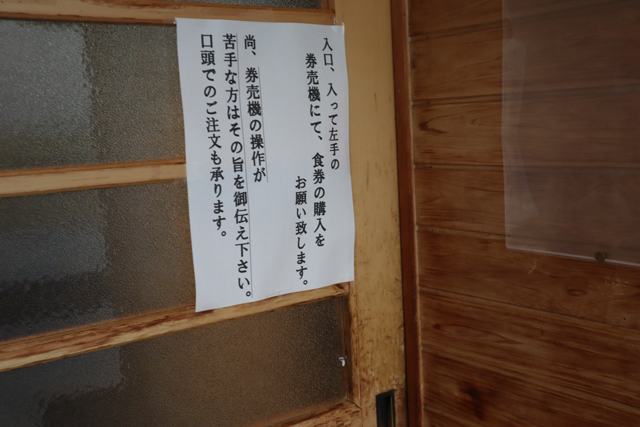 入口、入って左手の
券売機にて、食券の購入を
お願い致します。
尚、券売機の操作が
苦手な方はその旨を御伝え下さい。
口頭でのご注文も承ります。